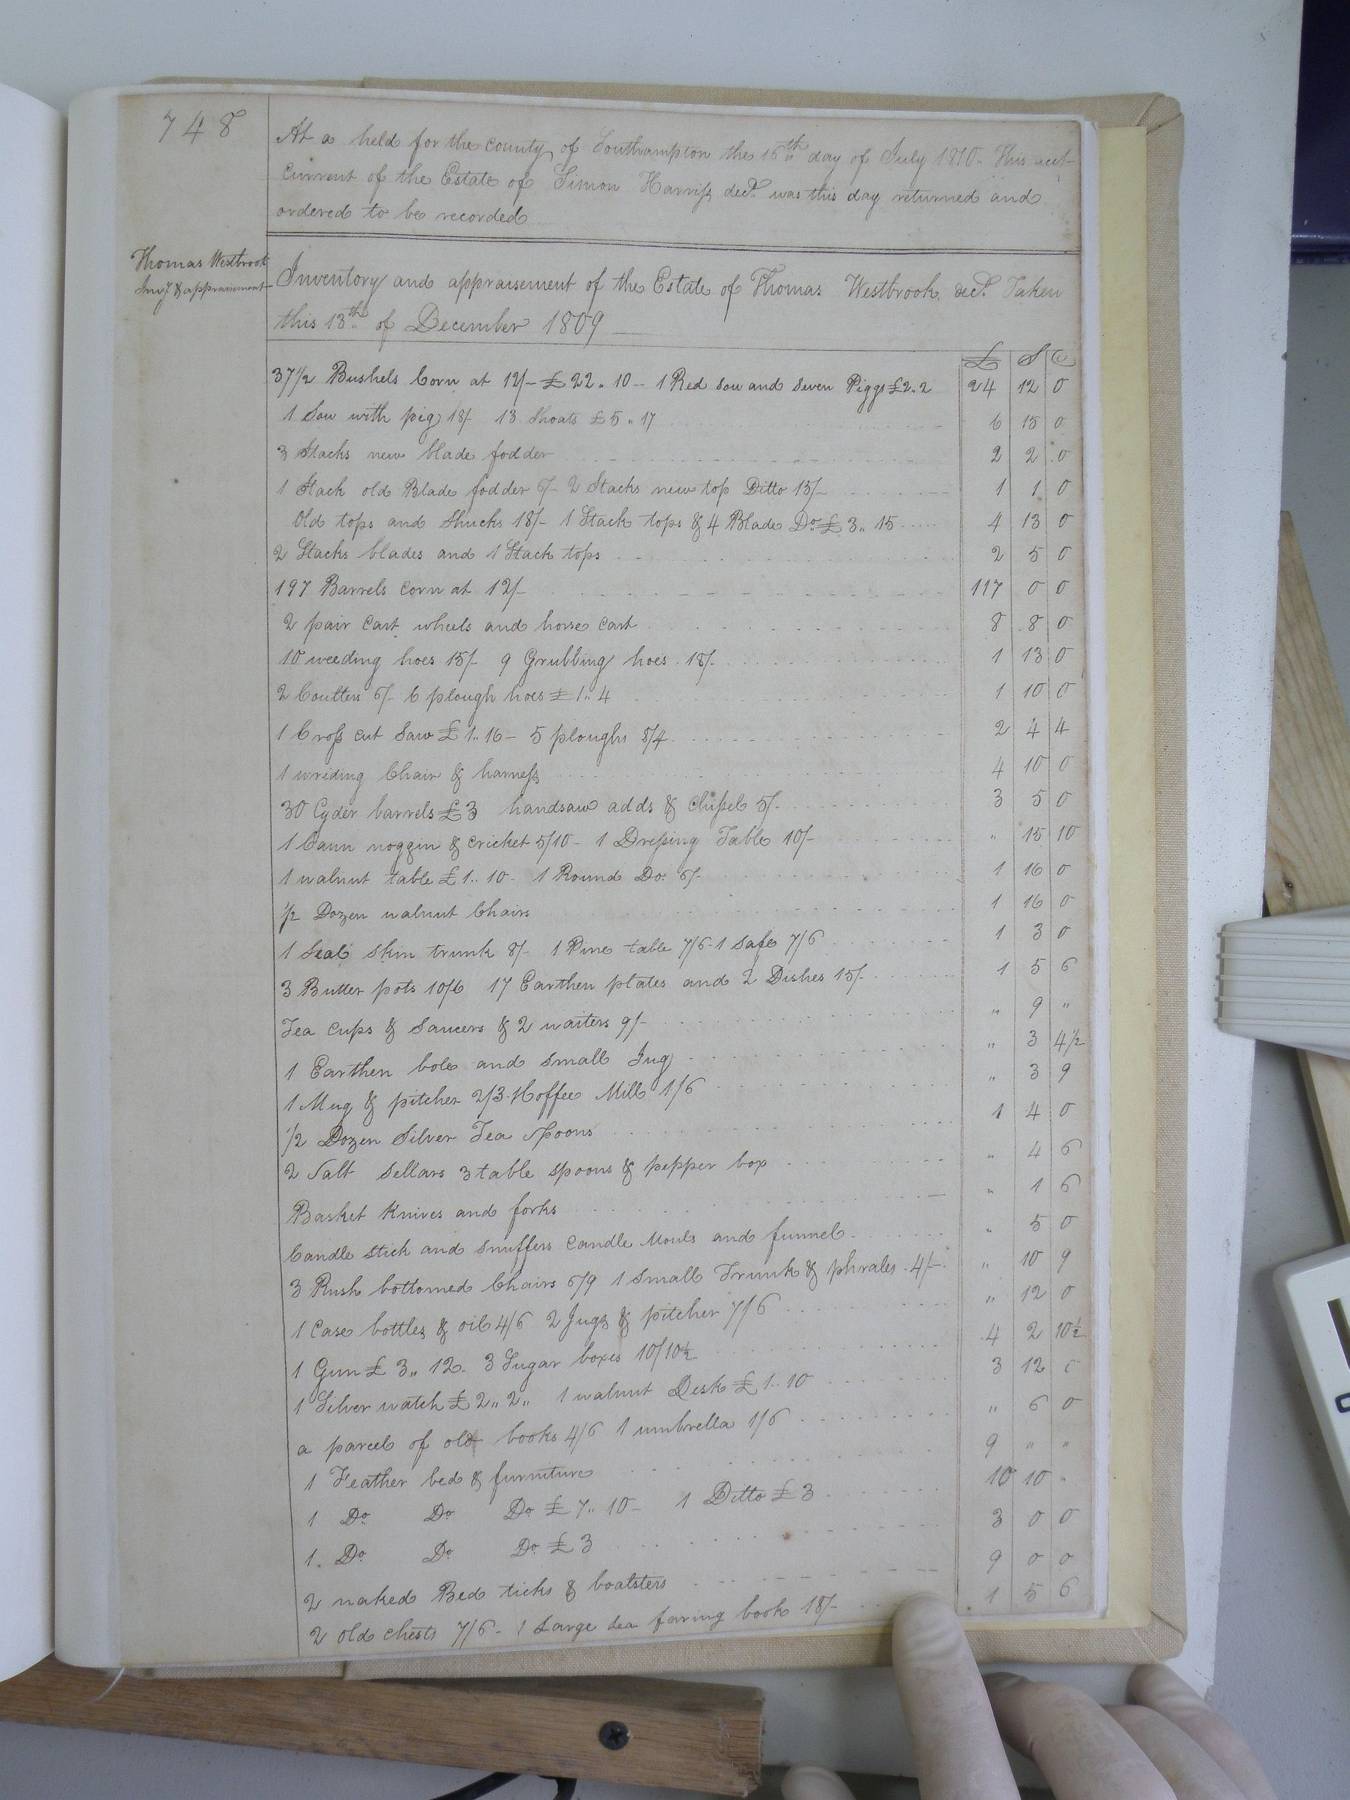 748
At a held for the county of Southampton the 16th day of July 1810. This acct
current of the Estate of Simon Harriss decd. was this day returned and
ordered to be recorded
Thomas Westbrook
Invy & appraisment
Inventory and appraisement of the Estate of Thomas Westbrook decd. Taken
this 13th of December 1809
£ S
37 1/2 Bushels Corn at 12/- £22.. 10 - 1 Red sow and seven Piggs £2.2 24 12 0
1 Sow with pig 18/ 13 Shoats £5..17 6 15 0
3 Stacks new blade fodder 2 2 0
1 Stack old Blade fodder 6/- 2 Stacks new top Ditto 15/- 1 1 0
Old tops and Shucks 18/- 1 Stack tops & 4 Blade Do £3..15 4 13 0
2 Stacks blades and 1 Stack tops 2 5 0
197 Barrels corn at 12/- 117 0 0
2 pair Cart wheels and horse Cart 8 8 0
10 weeding hoes 15/- 9 Grubbing hoes 18/- 1 13 0
2 Coulters 6/- 6 plough hoes £1..4 1 10 0
1 Cross cut Saw £1..16 - 5 ploughs 8/4 2 4 4
1 wriding Chair & harness 4 10 0
30 Cyder barrels £3 handsaw adds & chissel 5/- 3 5 0
1 Cann noggin & cricket 5/10 - 1 Dressing Table 10/- " 15 10
1 walnut table £1..10 - 1 Round Do. 6/- 1 16 0
1/2 Dozen walnut Chairs 1 16 0
1 Seal skin trunk 8/- 1 Pine table 7/6 - 1 Safe 7/6 1 3 0
3 Butter pots 10/6 17 Earthen plates and 2 Dishes 15/- 1 5 6
Tea Cups & Saucers & 2 waiters 9/- " 9 "
1 Earthen bole and small Jug " 3 4 1/2
1 Mug & pitcher 2/3 Hoffee Mill 1/6 " 3 9
1/2 Dozen Silver Tea Spoons 1 4 0
2 Salt Sellars 3 table spoons & pepper box " 4 6
Basket Knives and forks " 1 6
Candle stick and snuffers candle mouls and funnel " 5 0
3 Rush bottomed Chairs 6/9 1 Small Trunk & phrales 4/- " 10 9
1 Case bottles & oil 4/6 2 Jugs & pitcher 7/6 " 12 0
1 Gun £3.. 12. 3 Sugar boxes 10/10 1/2 4 2 10 1/2
1 Silver watch £2.. 2.. 1 walnut Desk £1..10 3 12
a parcel of old books 4/6 1 umbrella 1/6 " 6 0
1 Feather bed & furniture 9 " "
1 Do Do Do £7.. 10 - 1 Ditto £3 10 10 "
1. Do Do Do £3 3 0 0
2 naked Bed ticks & boalsters 9 0 0
2 Old chests 7/6 - 1 Large sea faring book 18/- 1 5 6